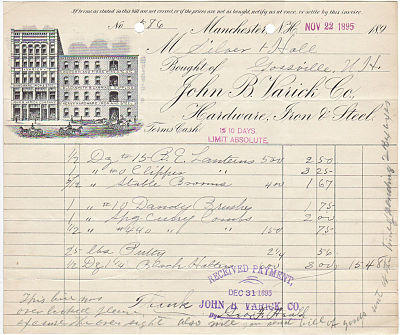 If terms as stated in this bill are not correct, or if the prices are not as bought, notify us at once, or settle by this invoice.
No. #86 Manchester, N.H. NOV 22 1895 189
M Pilver & Hall
Gossville, N.H.
Bought of
John B. Varick Co,
Hardware, Iron & Steel.
Terms Cash
15 10 DAYS
LIMIT ABSOLUTE.
1/2 Dz #15 Lanterns 500 2 50
1/2 " #0 Clipper 3 25
" Stable Brooms 400 1 67
1 " #10 Dandy Brushes 1 75
1 " Curry Combs 2 00
1/2 " #440 " 150 75
25 lbs Putty 2 1/4 56
1/2 Dz 1 1/4 Halters 3 00 15 48
RECEIVED PAYMENT,
DEC 31 1895
JOHN B. VARICK CO.
By
This bill was
overlooked please
excuse the oversight Also will you send bill
of goods